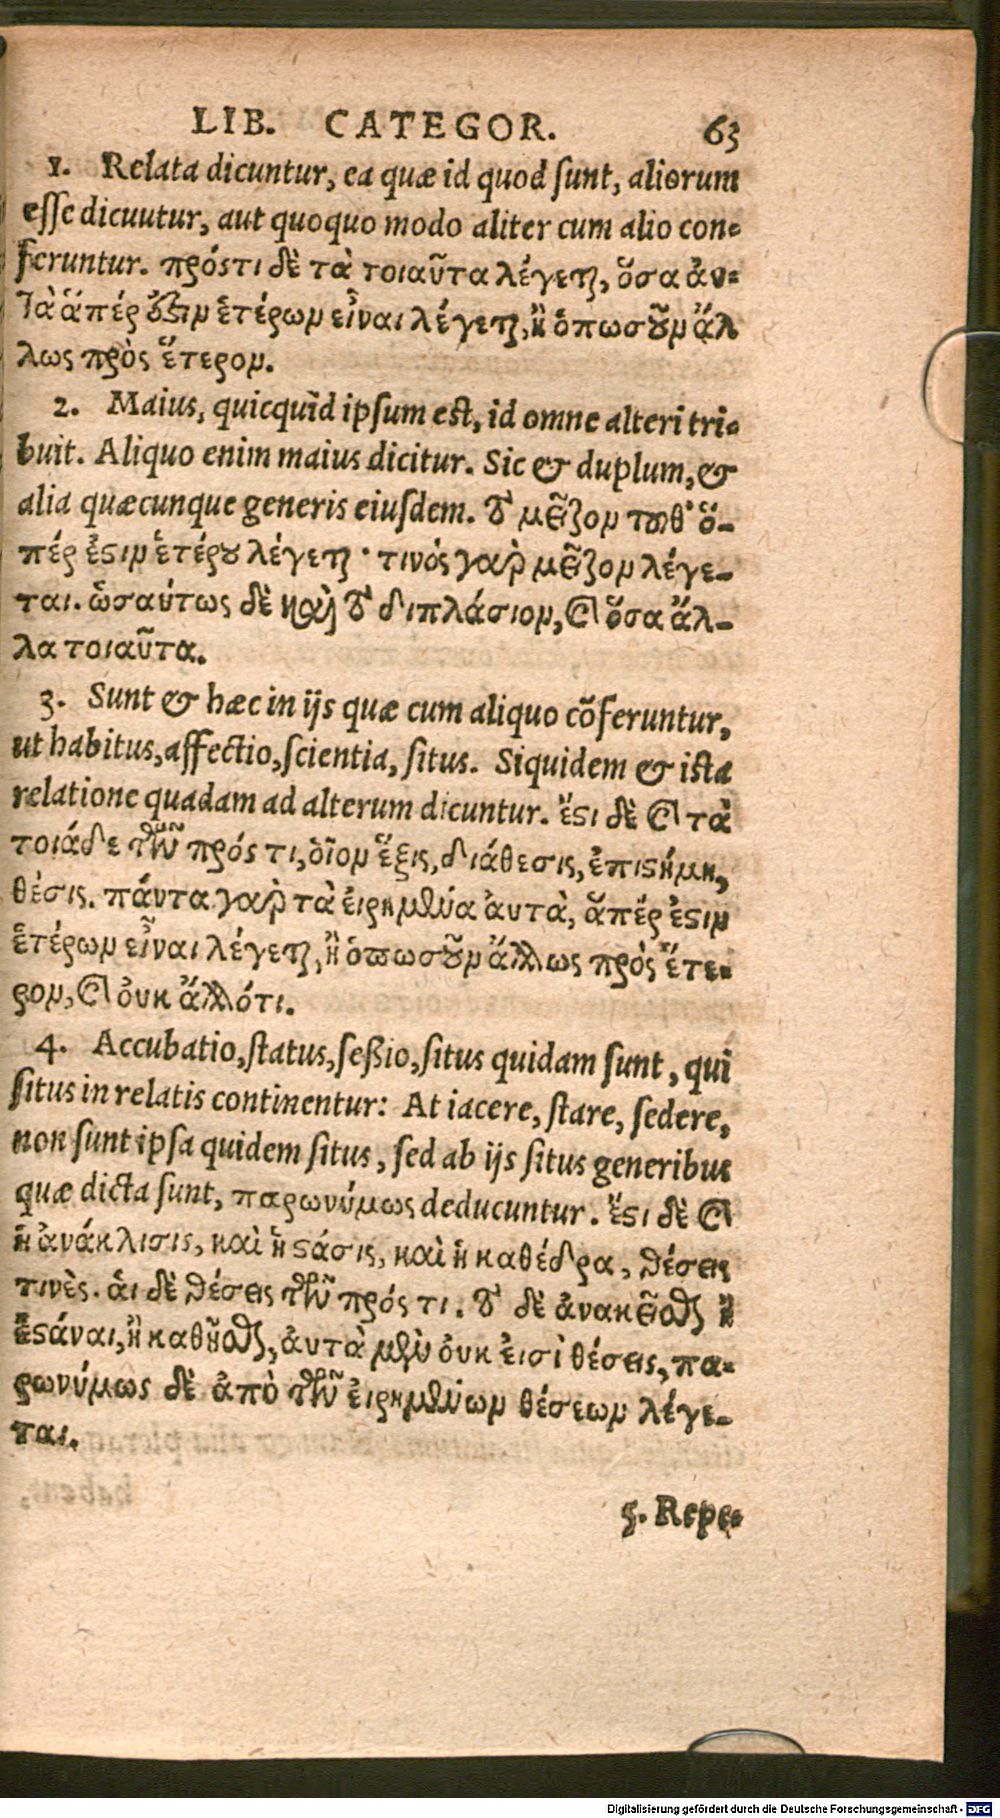 LIB. CATEGOR. 63
1. Relata dicuntur, ea quæ id quod sunt, aliorum
esse dicuutur, aut quoquo modo aliter cum alio con-
feruntur. πρόςτι δὲ τὰ τοιαῦτα λέγεται, ὅσα ἀυ-
τὰ ἅπέρ ὄξιμ ἑτέρωμ εἶναι λέγεται, ἢ ὁπωσοῦμ ἄλ
λως πρὸς ἕτερομ.
2. Maius, quicquid ipsum est, id omne alteri tri-
buit. Aliquo enim maius dicitur. Sic & duplum, &
alia quæcunque generis eiusdem. τὸ μεῖζομ τοῦθ' ὅ-
πέρ ἐςιμ ἑτέρου λέγεται · τινός γὰρ μεῖζομ λέγε-
ται. ὡσαύτως δὲ καὶ τὸ διπλάσιομ, καὶ ὅσα ἄλ-
λα τοιαῦτα.
3. Sunt & hæc in ijs quæ cum aliquo cõferuntur,
ut habitus, affectio, scientia, situs. Siquidem & ista
relatione quadam ad alterum dicuntur. ἔςι δὲ καὶ τὰ
τοιάδε τῶν πρός τι, ὁῖομ ἕξις, διάθεσις, ἐπιςήμη,
θέσις. πάντα γὰρ τὰ ἐιρημένα ἀυτὰ, ἅπέρ ἐςιμ
ἑτέρωμ εἶναι λέγεται, ἢ ὁπωσοῦμ ἄλλως πρὸς ἕτε-
ρομ, καὶ ὀυκ ἄλλότι.
4. Accubatio, status, seßio, situs quidam sunt, qui
situs in relatis continentur: At iacere, stare, sedere,
non sunt ipsa quidem situs, sed ab ijs situs generibus
quæ dicta sunt, παρωνύμως deducuntur. ἔςι δὲ καὶ
ἡ ἀνάκλισις, καὶ ἡ ςάσις, καὶ ἡ καθέδρα, θέσεις
τινὲς. ἁι δὲ θέσεις τῶν πρός τι. τὸ δὲ ἀνακεῖσθαι ἢ
ἑςάναι, ἢ καθῆσθαι, ἀυτὰ μὲν ὀυκ ἐισὶ θέσεις, πα-
ρωνύμως δὲ ἀπὸ τῶν ἐιρημένωμ θέσεωμ λέγε-
ται.
5. Repe-
Digitalisierung gefördert durch die Deutsche Forschungsgemeinschaft - DFG